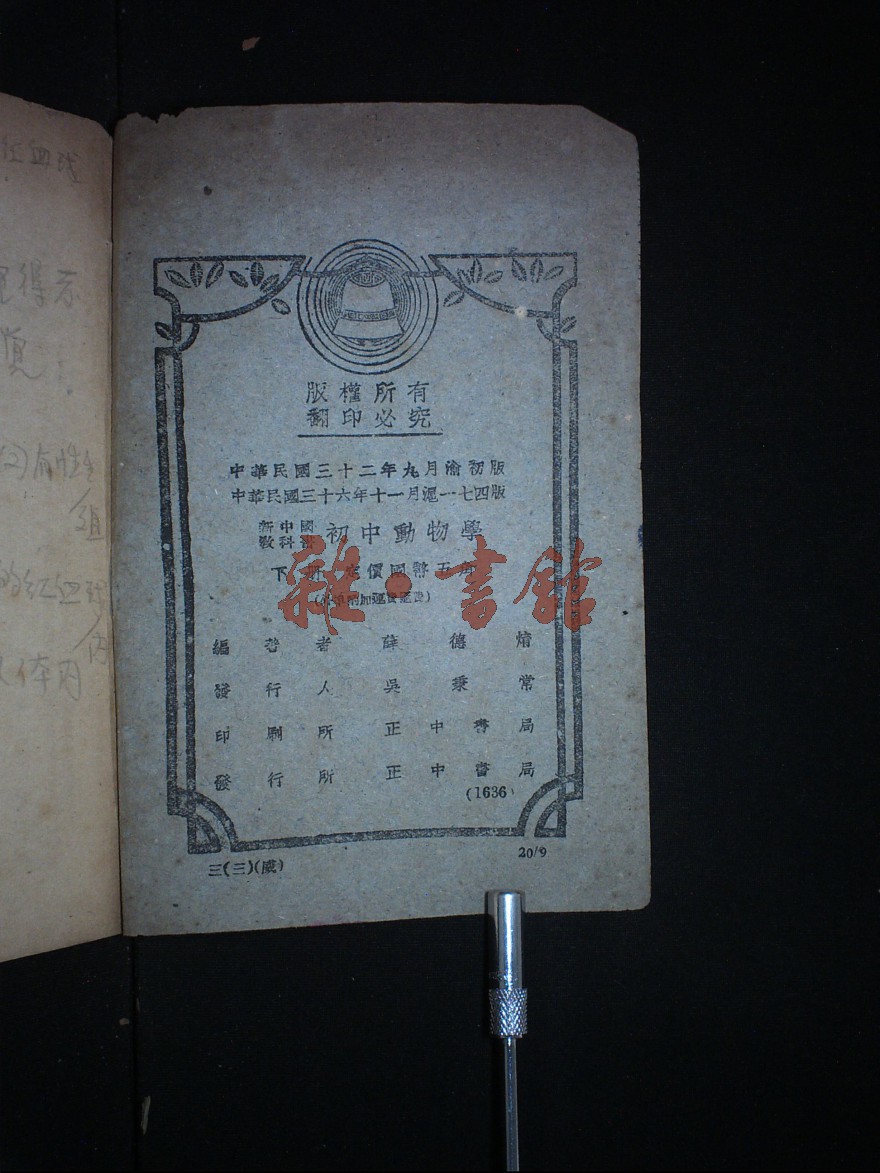 版權所有
翻印必究
中華民國三十二年九月渝初版
中華民國三十六年十一月滬一七四版
新中國教科書 初中動物學
下冊 定價國幣五
加運費
編著者 薛德焴
發行人 吳秉常
印刷所 正中書局
發行所 正中書局
(1636)
三(三)(威)
20/9
雜·書館
血球
得
有性
組
的紅血球
內
体內